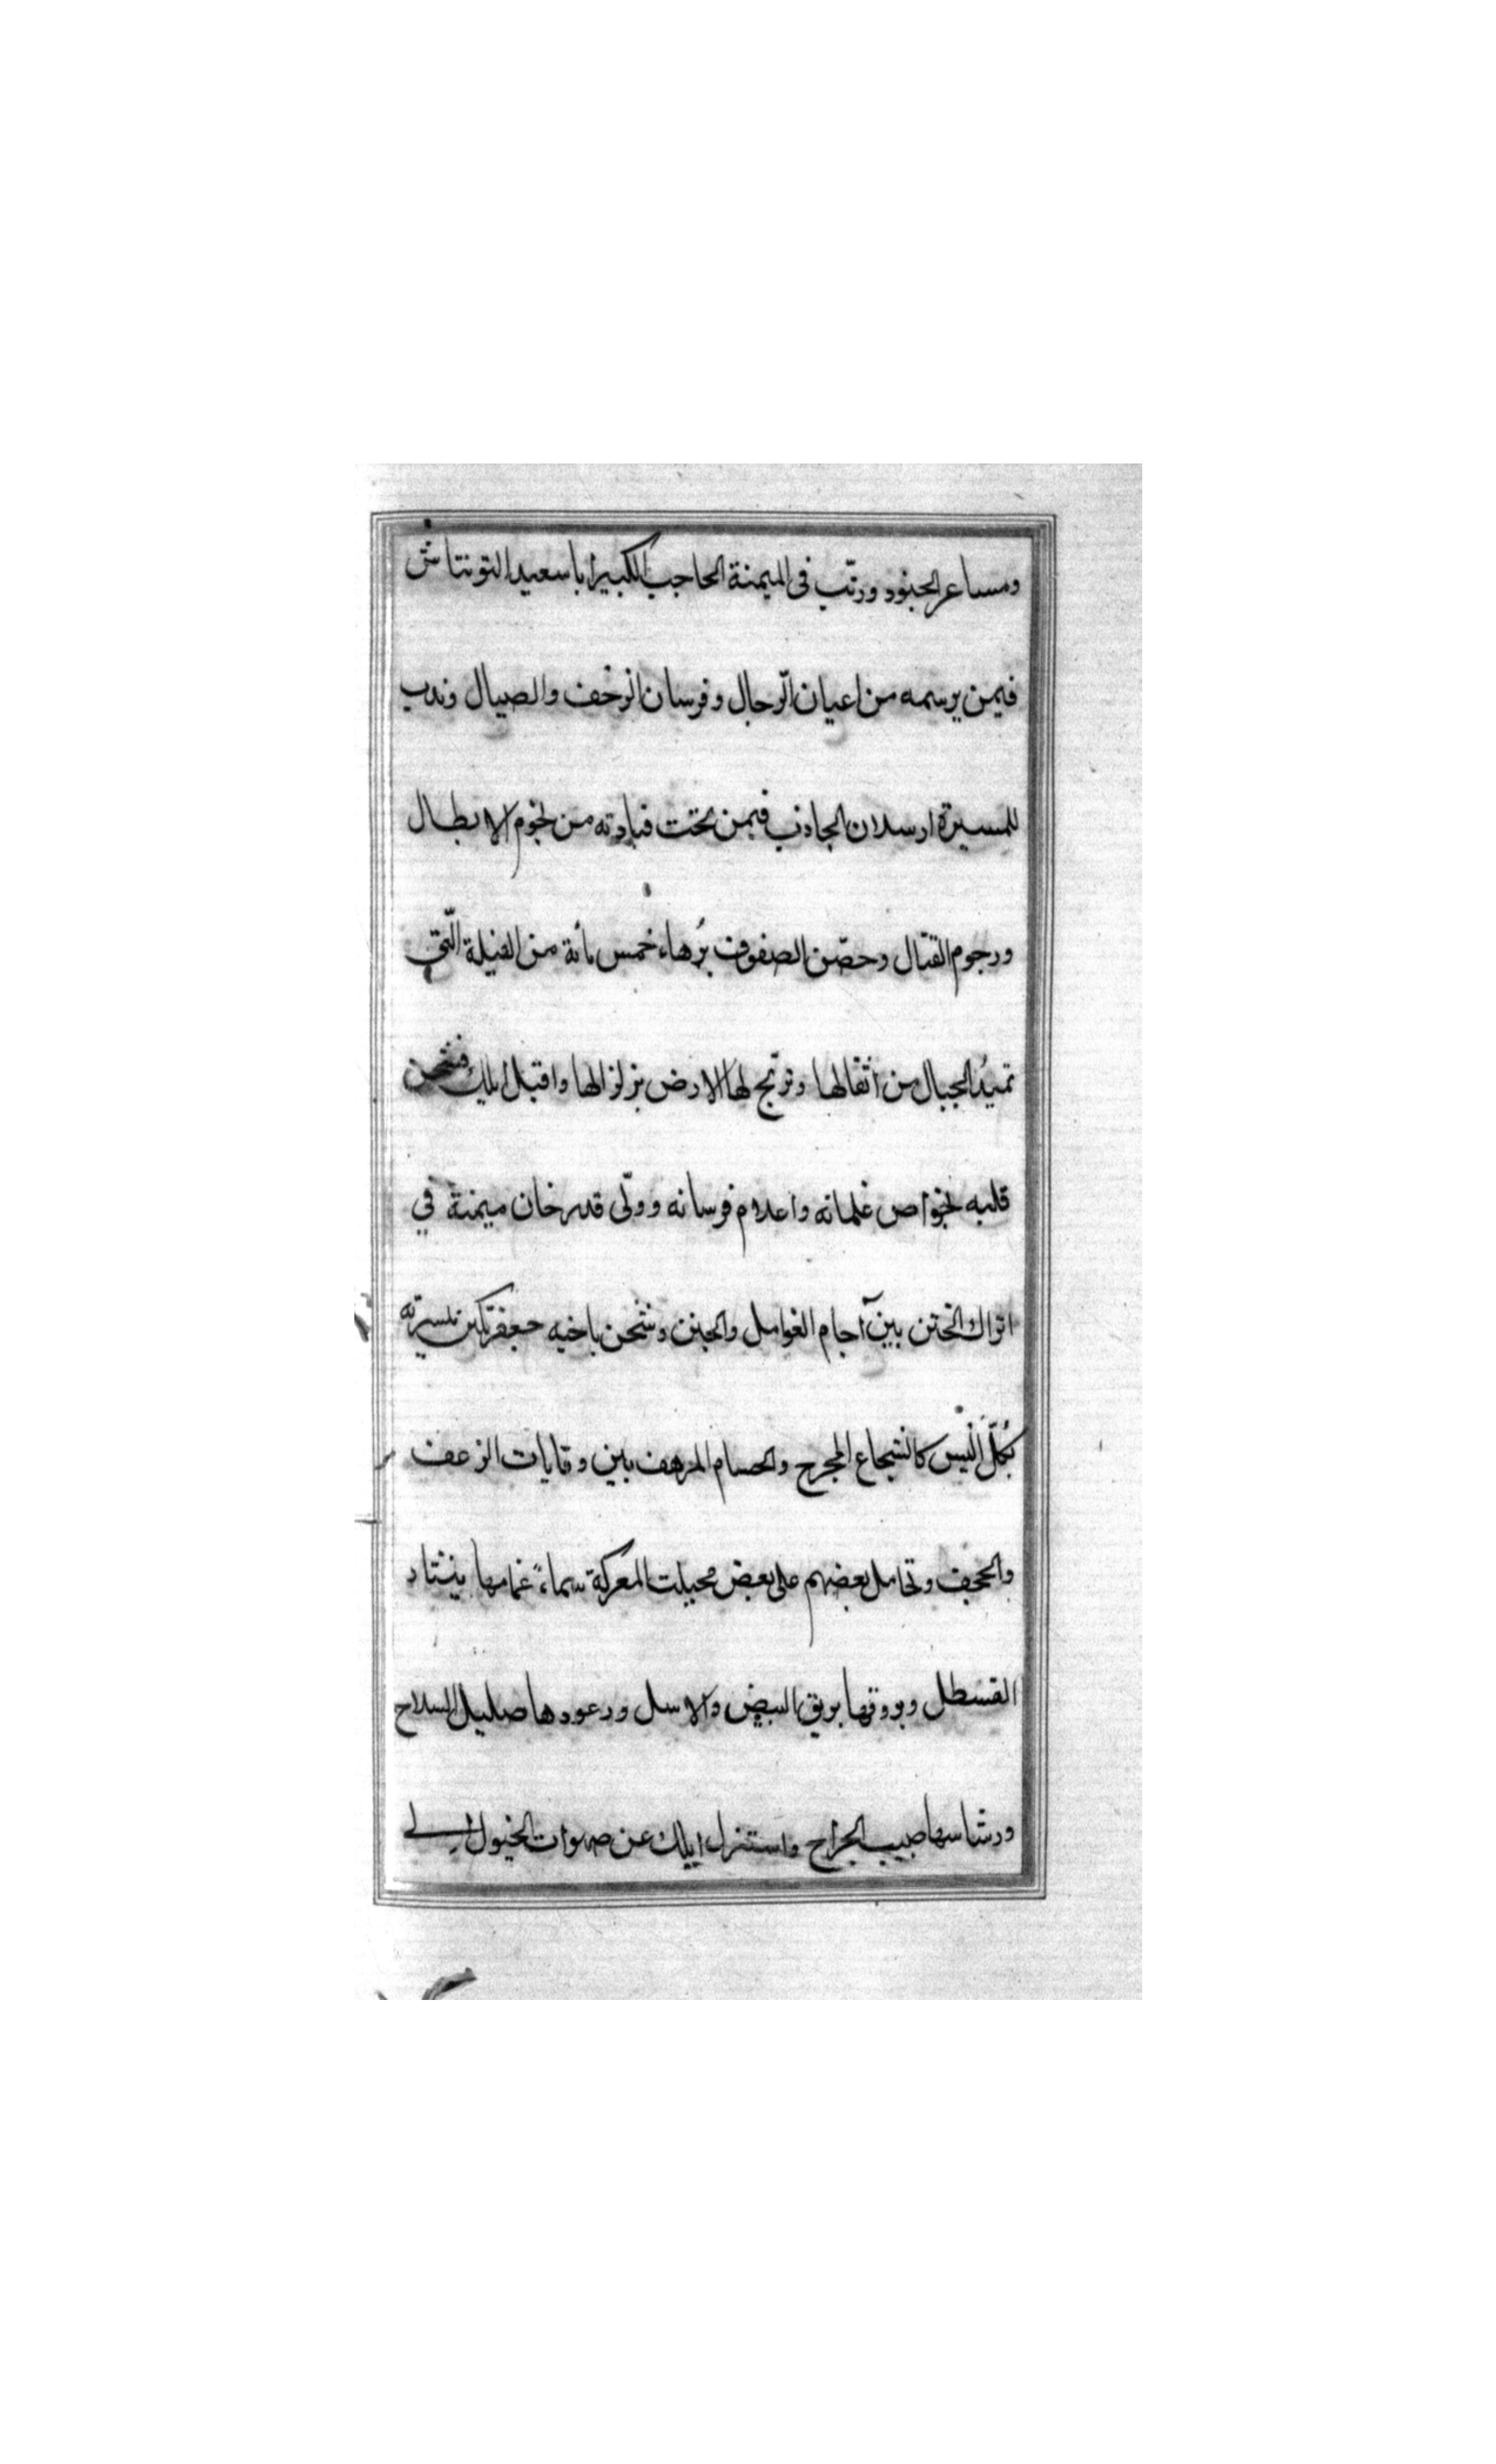 ومساعر الجنود ورتّب فى الميمنة الحاجب الكبير ابا سعيد التونتاش
فيمن يرسمه من اعيان الّرجال وفرسان الزحف والصيال وندب
للمسيرة ارسلان الجاذب فيمن تحت قيادته من نجوم الابطال
ورجوم القتال وحصّن الصفوف بزُهاء خمس مائة من الفيلة الّتى
تميدُ الجبال من اثقالها وترتج لها الارض بزلزالها واقبل ايلك فشحن
قلبه بخواص غلمانه واعلام فرسانه وولّى قدرخان ميمنة في
اتراك الختن بين آجام العوامل والجنن وشحن باخيه جعفرتكين مَيسرته
بكُلّ الَيس كالشجاع المجرح والحسام المرهف بين وقايات الزعف
والحجف وتحامل بعضهم على بعض فخيلت المعركة سماءً غمامها
القسطل وبروقها بريق البيض والاسل ورعودها صليل السلاح
ورشاشها صبيب الجراح واستنزل ايلك عن صهوات الخيول